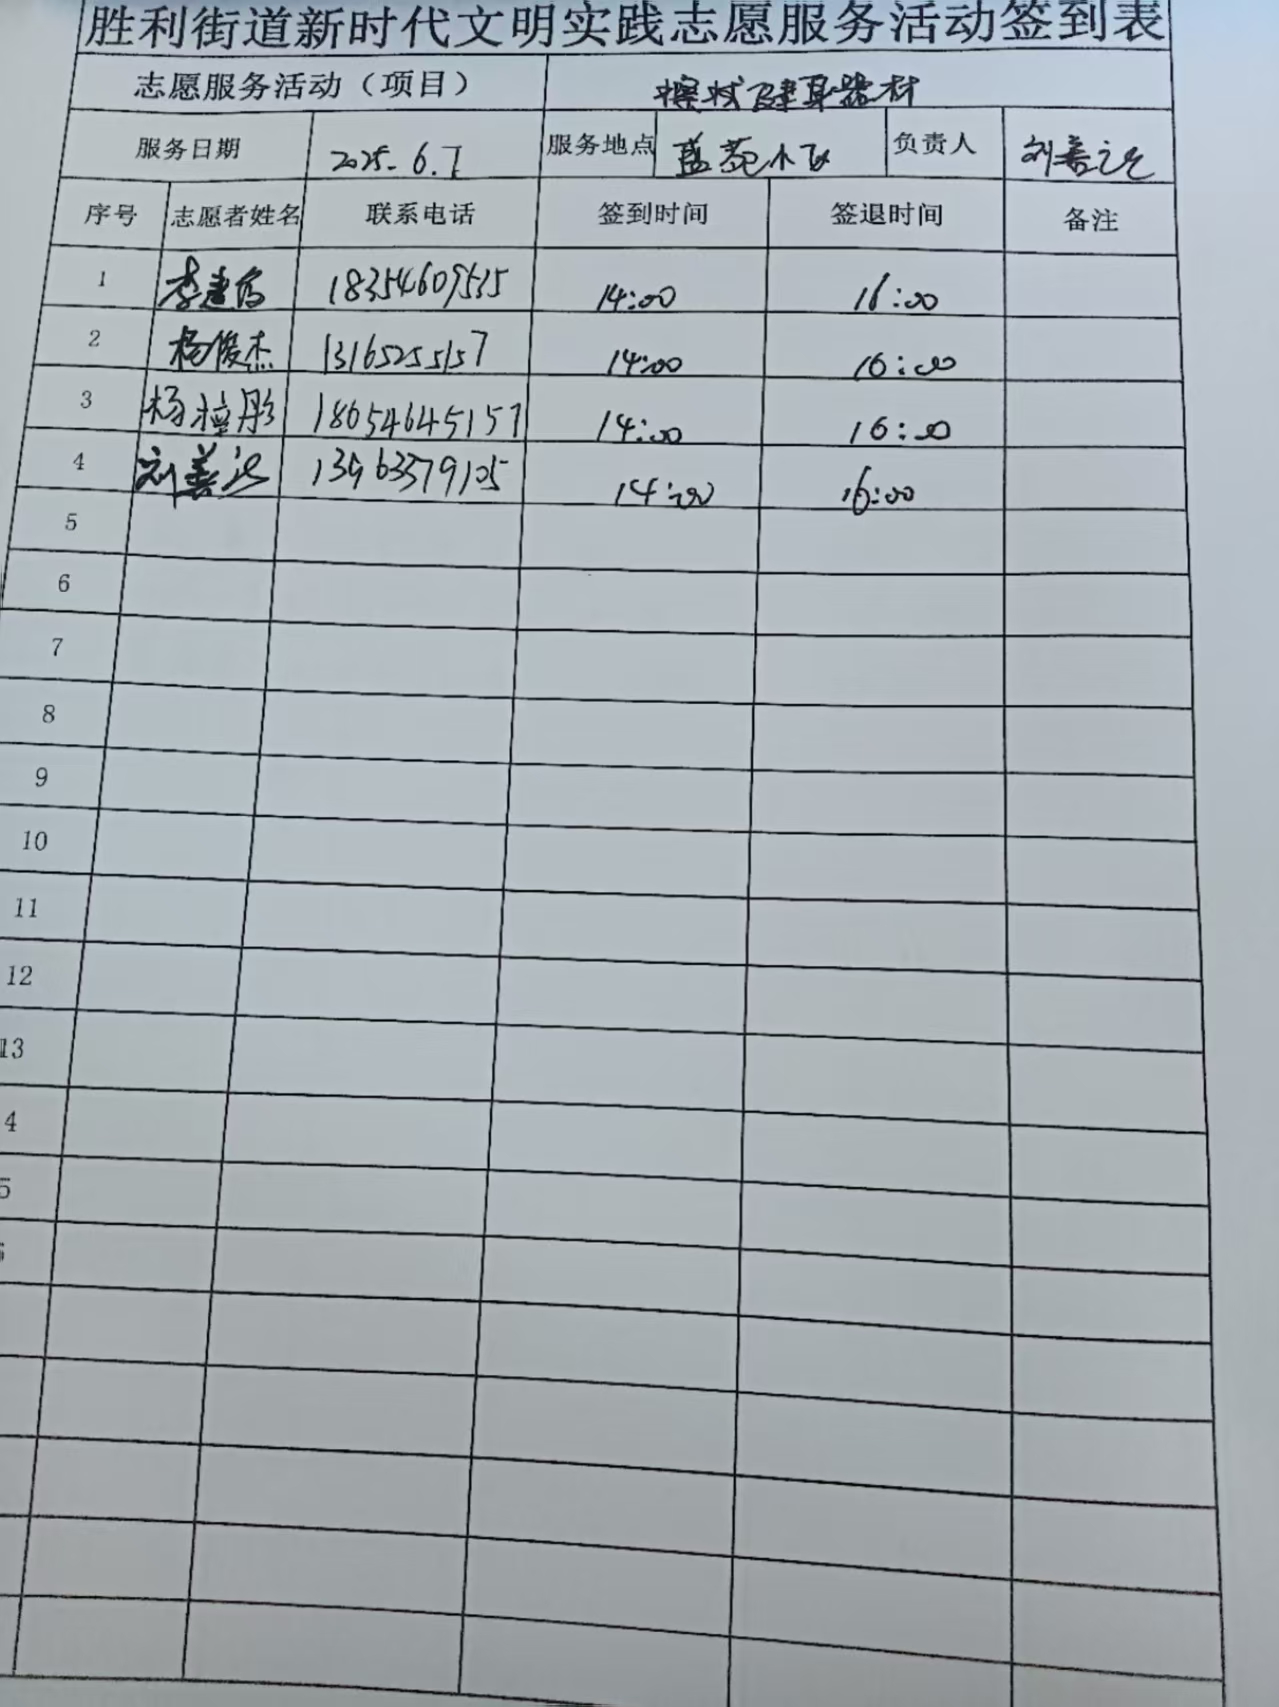 胜利街道新时代文明实践志愿服务活动签到表
志愿服务活动（项目） 擦拭健身器材
服务日期 2025.6.7 服务地点 蓝苑小区 负责人 刘善
序号 志愿者姓名 联系电话 签到时间 签退时间 备注
1 李建 18354609535 14:00 16:00
2 杨俊杰 13165255157 14:00 16:00
3 杨梓彤 18654645157 14:00 16:00
4 刘善 13963379105 14:00 16:00
5
6
7
8
9
10
11
12
13
4
5